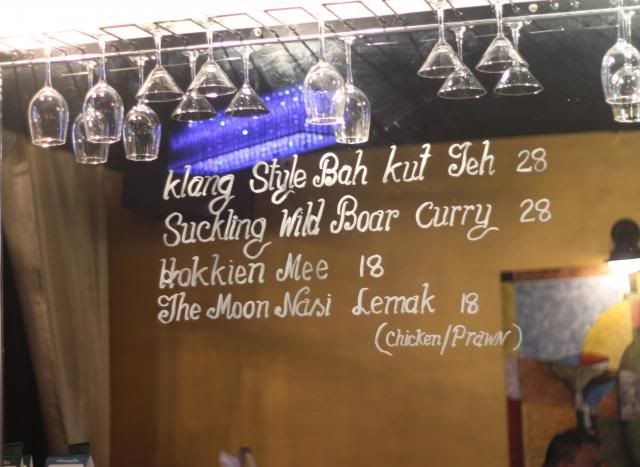 klang Style Bah kut Teh 28
Suckling Wild Boar Curry 28
Hokkien Mee 18
The Moon Nasi Lemak 18
(Chicken/Prawn)